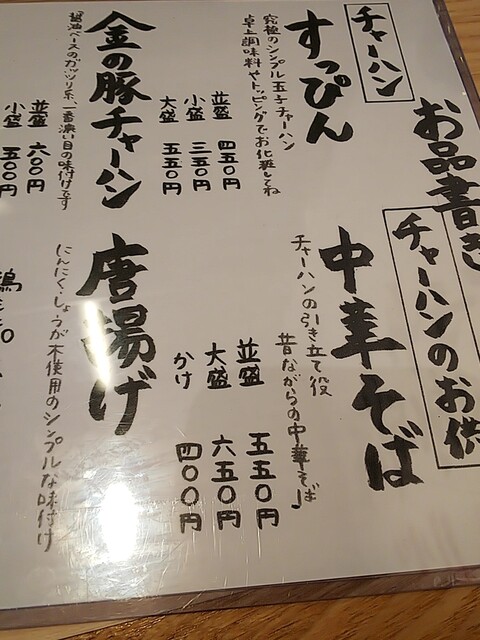 お品書き
チャーハン
すっぴん
究極のシンプル玉子チャーハン
卓上調味料やトッピングでお化粧してね
並盛 四五〇円
小盛 三五〇円
大盛 五五〇円
金の豚チャーハン
醤油ベースのガッツリ系、一番濃い目の味付けです
並盛 六〇〇円
小盛 五〇〇円
チャーハンのお供
中華そば
チャーハンの引き立て役
昔ながらの中華そば
並盛 五五〇円
大盛 六五〇円
かけ 四〇〇円
唐揚げ
にんにく・しょうが不使用のシンプルな味付け